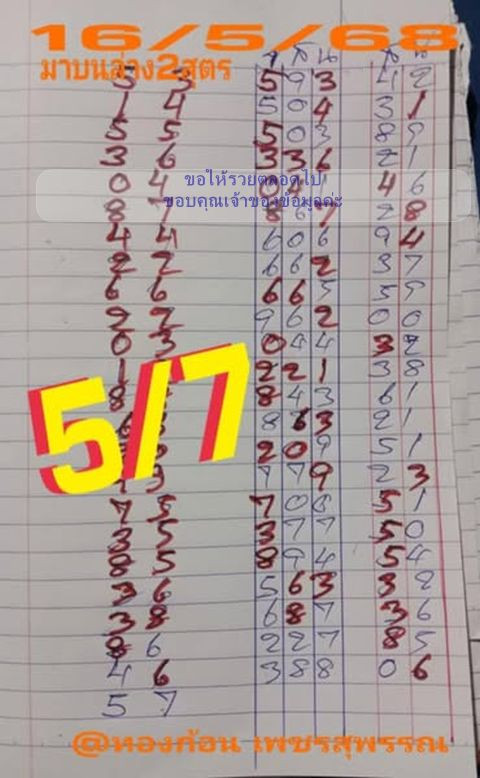 16/5/68
มาบนล่าง2สูตร
ขอให้รวยตลอดไป
ขอบคุณเจ้าของข้อมูลค่ะ
5/7
3 3 593 42
1 4 504 31
5 5 503 89
3 6 336 21
0 4 46
8 7 867 28
4 4 606 94
2 2 662 37
6 6 665 59
2 2 962 00
0 3 044 32
1 221 38
8 843 61
6 863 21
209 51
779 23
7 5 706 51
3 5 377 50
8 5 894 54
3 6 563 32
3 8 687 36
8 6 227 85
4 6 388 06
5 7
@ทองก้อน เพชรสุพรรณ